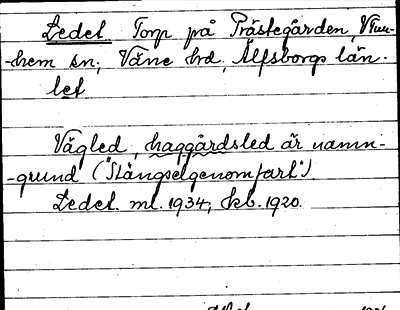 Ledet. Torp på Prästegården, Vän-
-hem sn; Väne hd, Älfsborgs län.
let
Vägled, haggårdsled är namn-
-grund ("Stängselgenomfart").
Ledet. ml. 1934; kb. 1920.